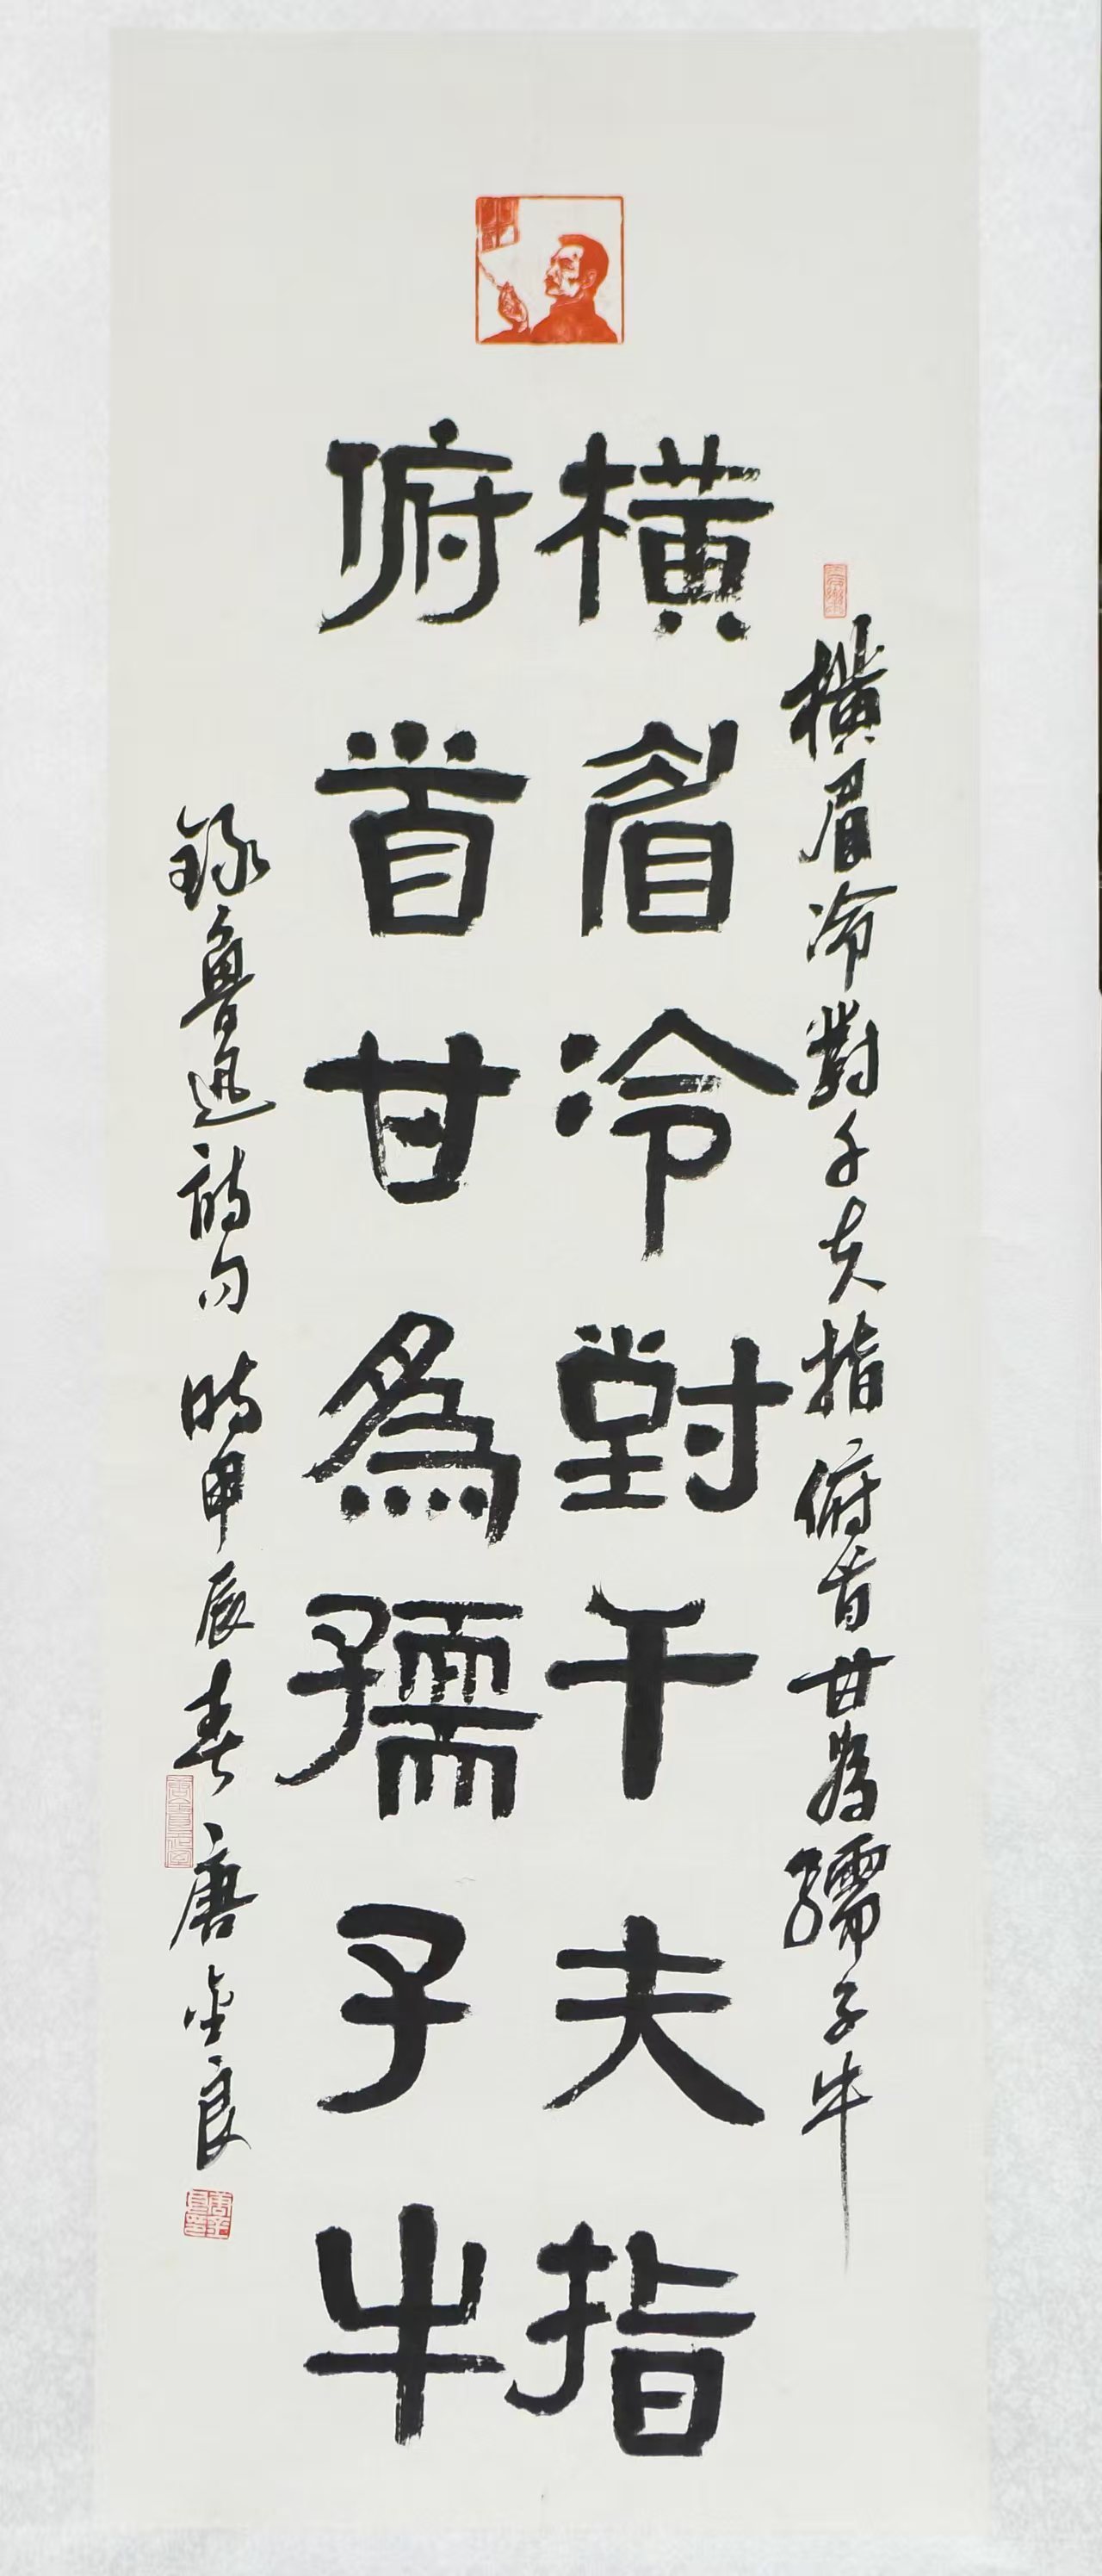 橫眉冷對千夫指俯首甘為孺子牛
橫眉冷對千夫指
俯首甘為孺子牛
錄魯迅詩句時甲辰春唐金良